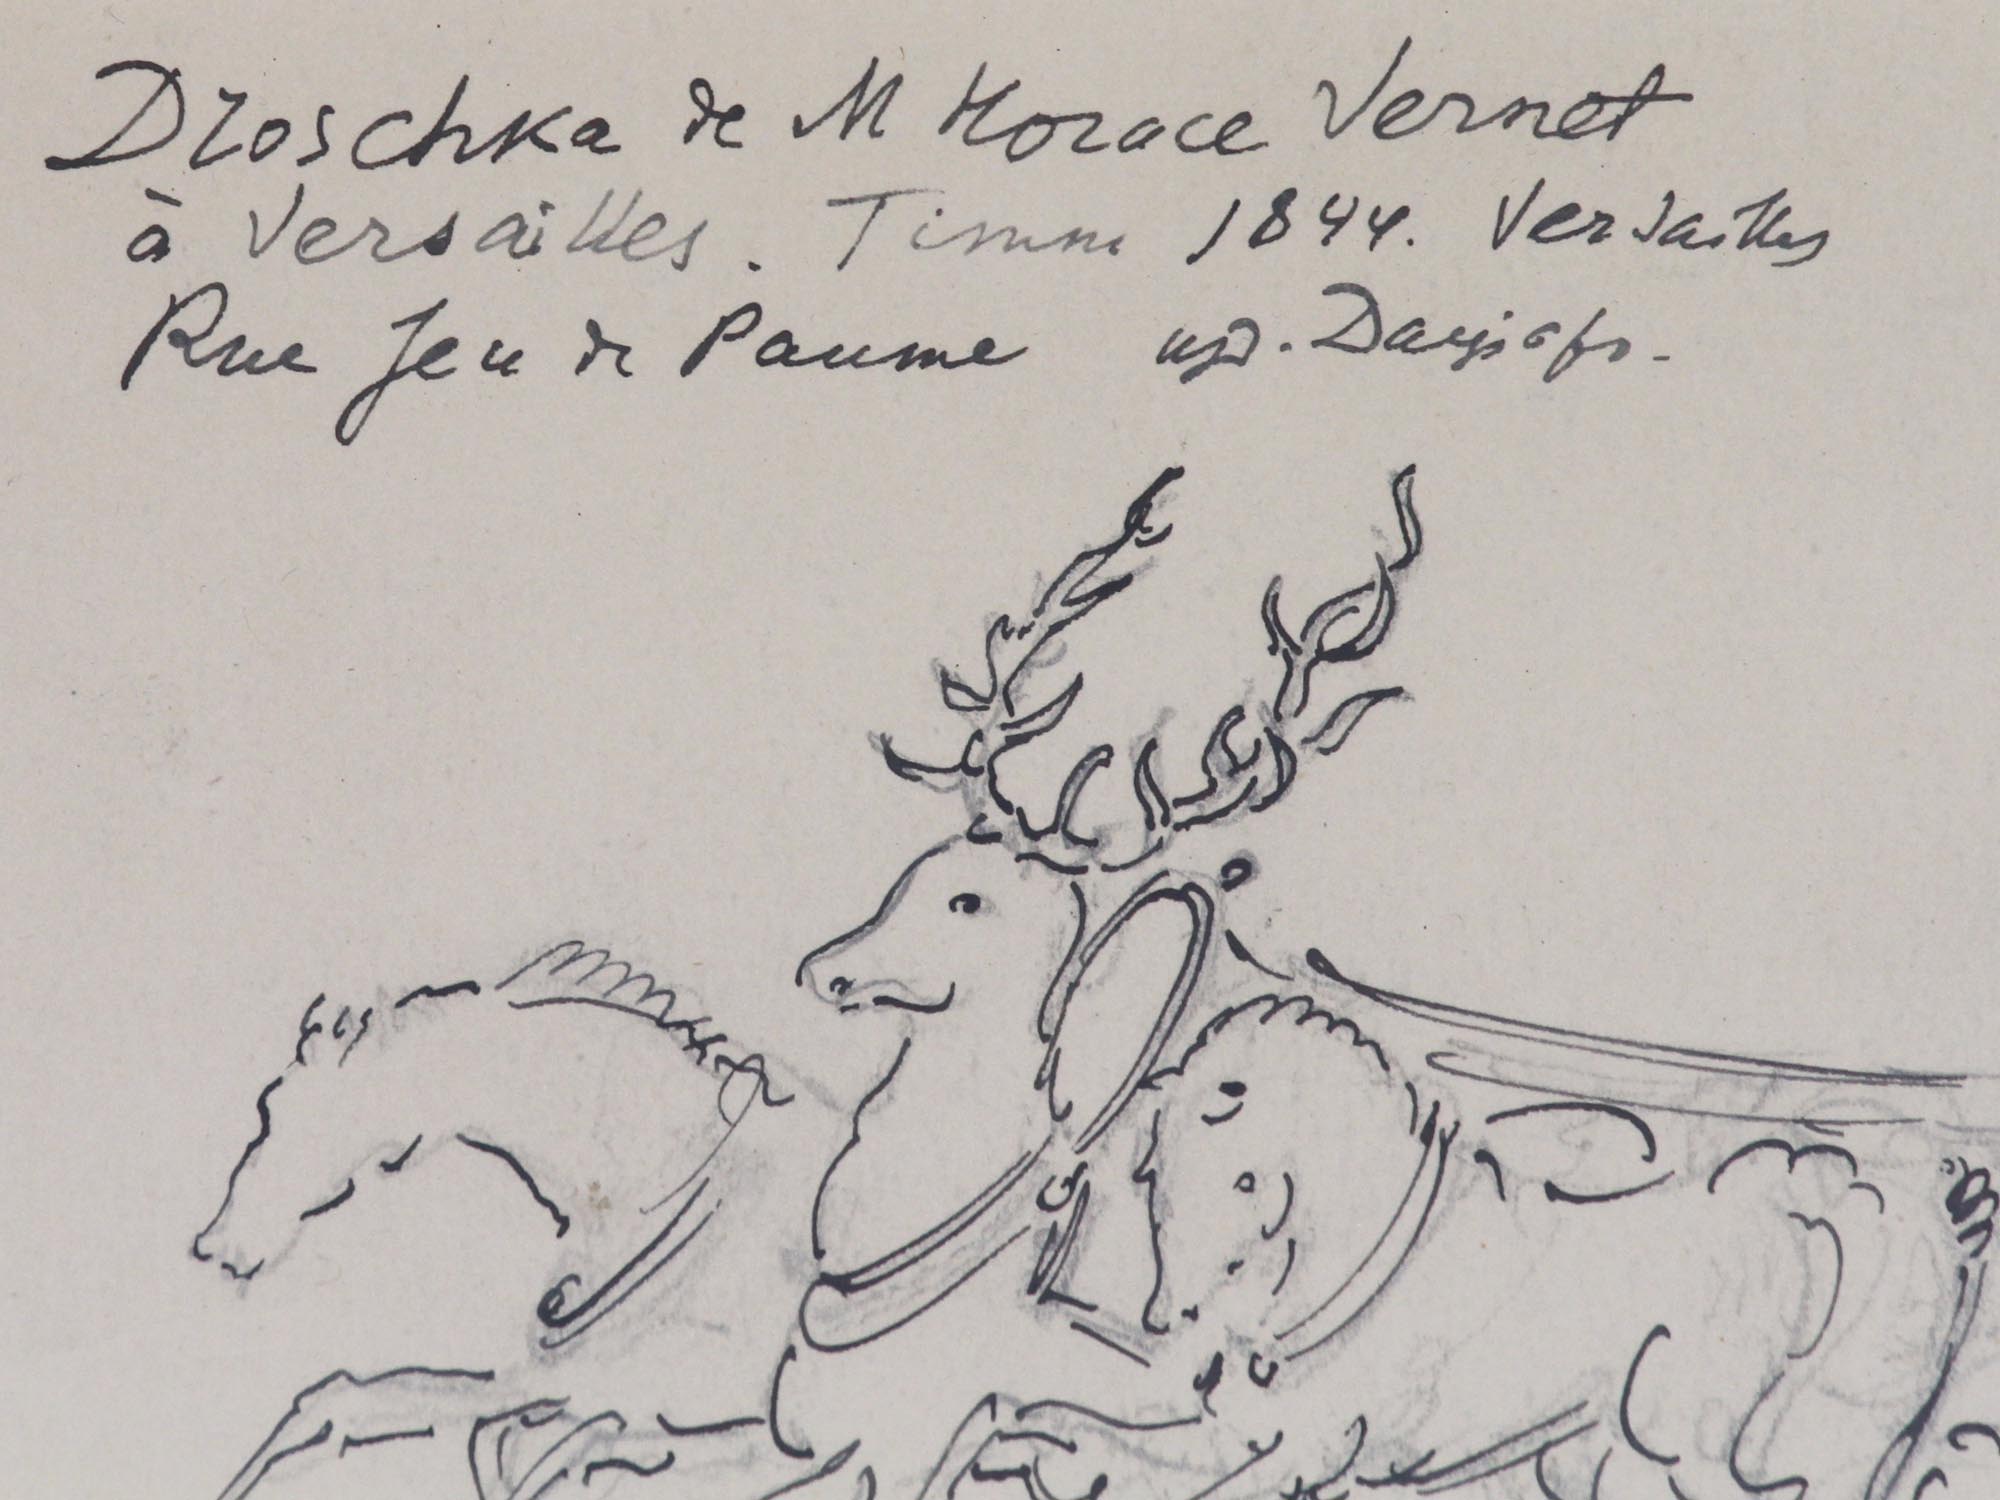 Droschka de M Horace Vernet
à Versailles. Timm 1844. Versailles
Rue Jeu de Paume изд. Дациаро.